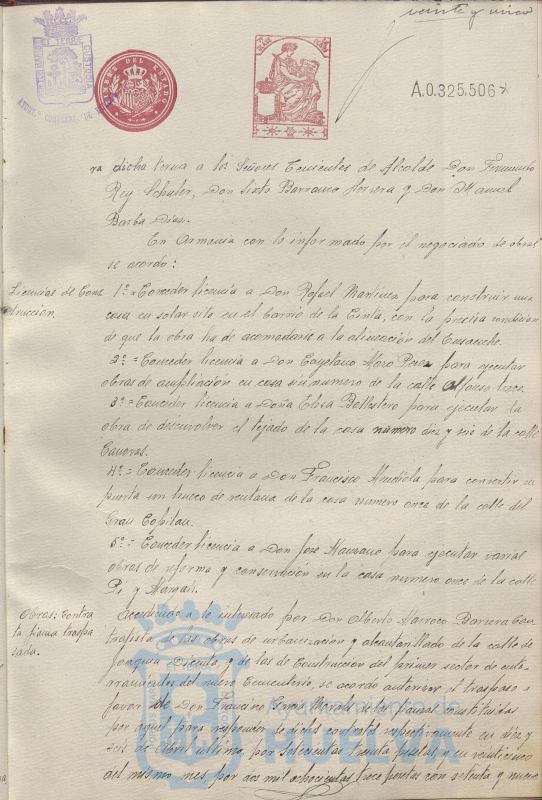 veinte y cinco
TIMBRE DEL ESTADO
A.0.325.506*
ra dicha terna a los Señores Tenientes de Alcalde Don Fernando
Rey Schuler, Don Sixto Barranco Herrera y Don Manuel
Barba Diaz.
En Armonia con lo informado por el negociado de obras
se acordo:
Licencias de Cons
trucción.
1º = Conceder licencia a Don Rafael Martinez para construir una
casa en solar sito en el barrio de la Cinta, con la precisa condición
de que la obra ha de acomodarse a la alineación del Ensanche.
2º = Conceder licencia a Don Cayetano Moro Perez para ejecutar
obras de ampliación en casa sin numero de la calle Alfonso trece.
3º = Conceder licencia a Doña Elisa Ballestero para ejecutar la
obra de desenvolver el tejado de la casa número diez y seis de la calle
Canovas.
4º = Conceder licencia a Don Francisco Mendiola para convertir en
puerta un hueco de ventana de la casa numero once de la calle del
Gran Capitan.
5º = Conceder licencia a Don Jose Manzano para ejecutar varias
obras de reforma y conservación en la casa numero once de la calle
Pi y Margall.
Obras: Contra
ta fianza traspa
sada.
Accediendo a lo interesado por Don Alberto Marroco Barrera Con
tratista de las obras de urbanización y alcantarillado de la calle de
Joaquin Dicenta, y de las de Construcción del primer sector de ente-
rramientos del nuevo Cementerio, se acordo autorizar el traspaso a
favor de Don Francisco Morales de las fianzas constituidas
por aquel para responder de dichos contratos respectivamente en diez y
seis de Abril ultimo, por setecientas treinta pesetas, y en veinticinco
del mismo mes, por dos mil ochocientas trece pesetas con setenta y nueve
Ayuntamiento de
HUELVA